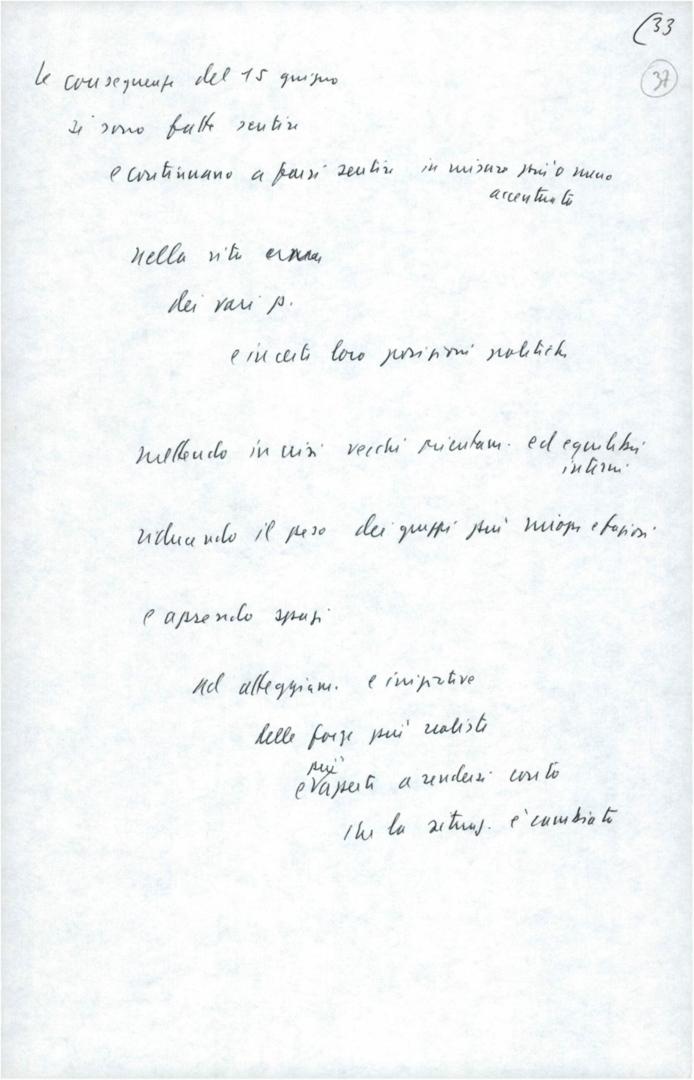 (33
37
Le conseguenze del 15 giugno
si sono fatte sentire
e continuano a farsi sentire in misura più o meno
accentuata
nella vita
dei vari p.
e in certe loro posizioni politiche
mettendo in crisi vecchi orientam. ed equilibri
interni
riducendo il peso dei gruppi più miopi e faziosi
e aprendo spazi
ad atteggiam. e iniziative
delle forze più realiste
più
e aperte a rendersi conto
che la situaz. è cambiata